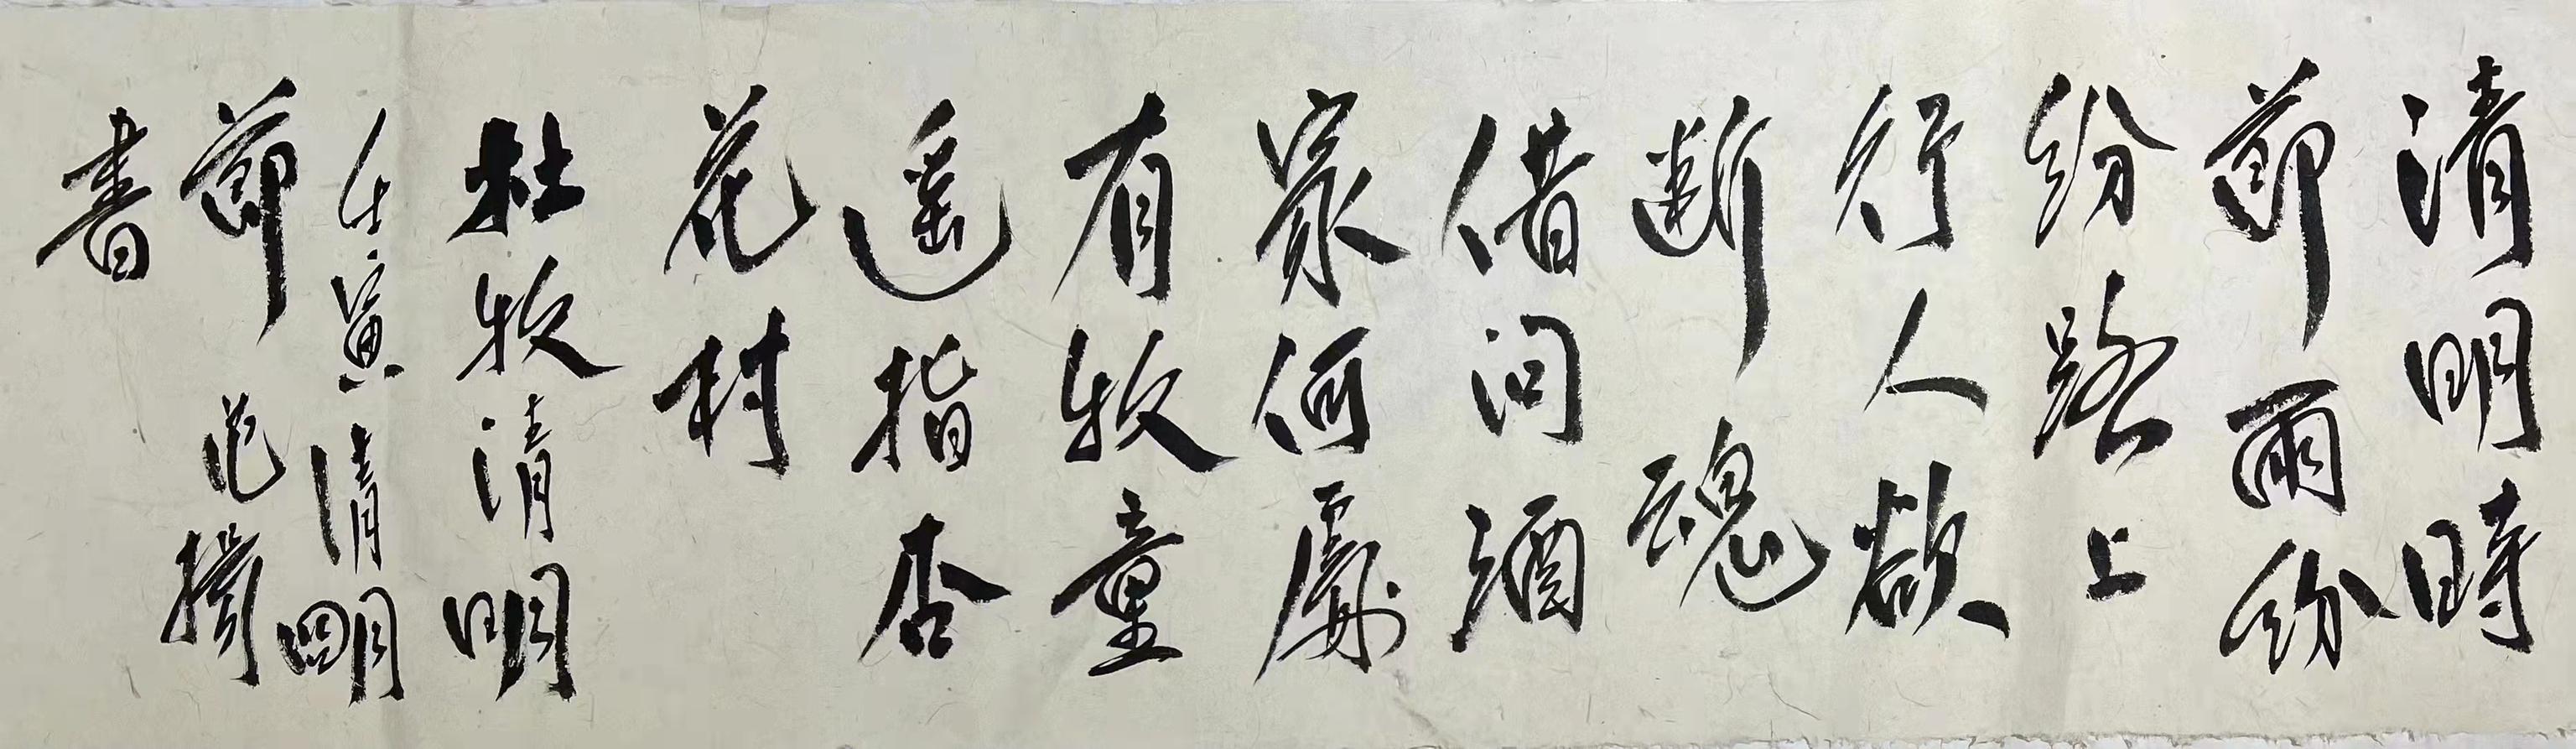 清明時
節雨紛
紛路上
行人欲
断魂
借问酒
家何處
有牧童
遥指杏
花村
杜牧清明
壬寅清明
節
書